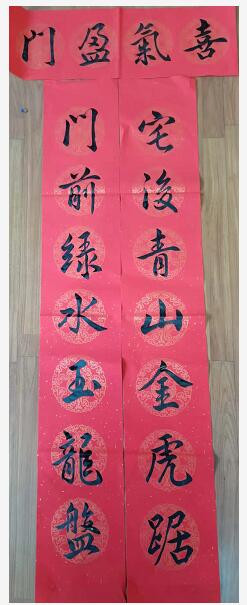 喜氣盈門
宅後青山金虎踞
門前緑水玉龍盤